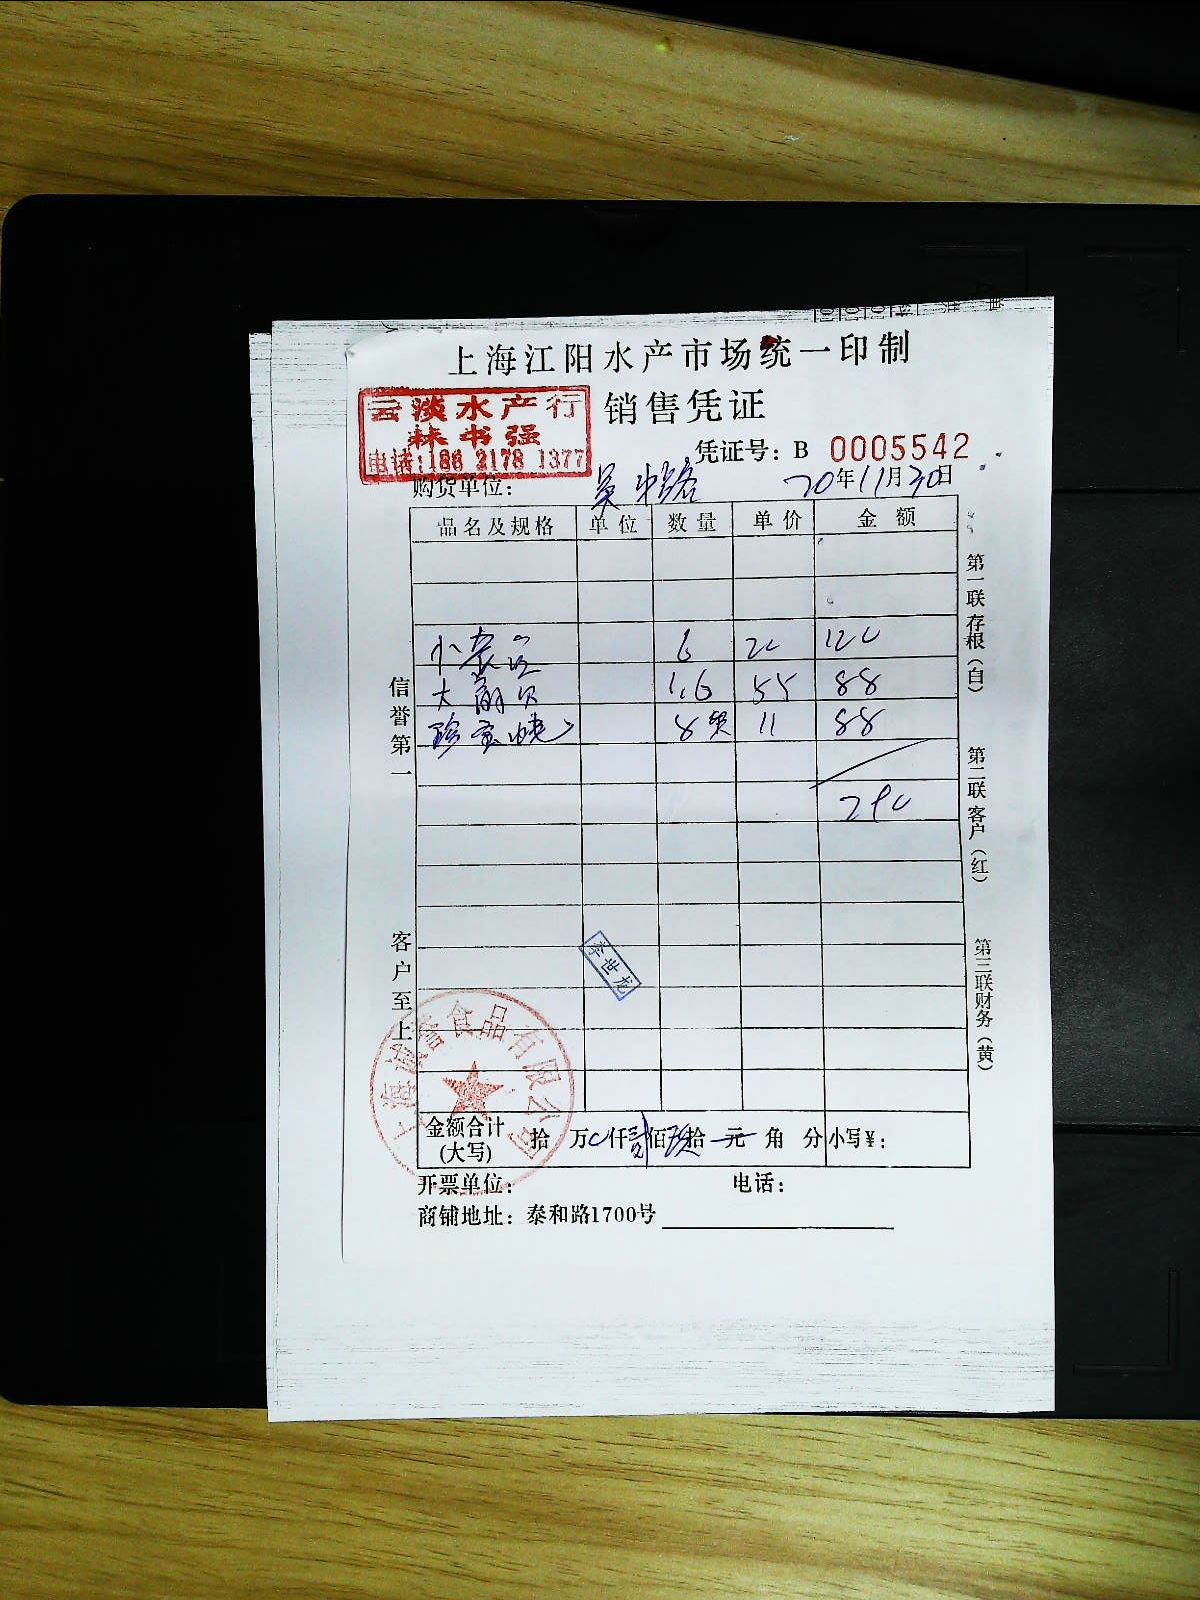 上海江阳水产市场统一印制
云淡水产行
林书强
电话:186 2178 1377
销售凭证
凭证号: B 0005542
购货单位: 吴中路 20年11月30日
品名及规格 单位 数量 单价 金额
6 20 120
大扇贝 1.6 55 88
8 11 88
290
信誉第一
客户至上
第一联存根(白)
第二联客户(红)
第三联财务(黄)
李世龙
上海诚誉食品有限公司
金额合计(大写) 拾 万 仟贰佰玖拾 元 角 分 小写¥:
开票单位: 电话:
商铺地址: 泰和路1700号